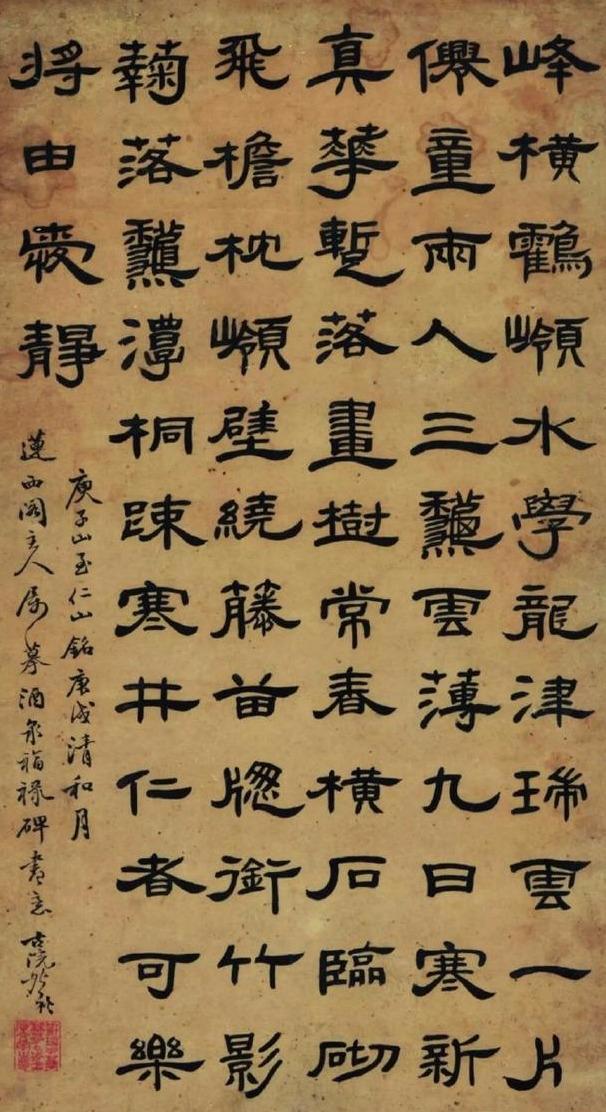 峰橫鶴嶺水學龍津瑞雲一片
僊童兩人三龝雲薄九日寒新
真華暫落畫樹常春橫石臨砌
飛檐枕嶺壁繞藤苗牕銜竹影
菊落龝潭桐疎寒井仁者可樂
將由愛靜
庚子山至仁山銘庚戌清和月
蓮西閣主人屬摹酒泉福祿碑書意古浣